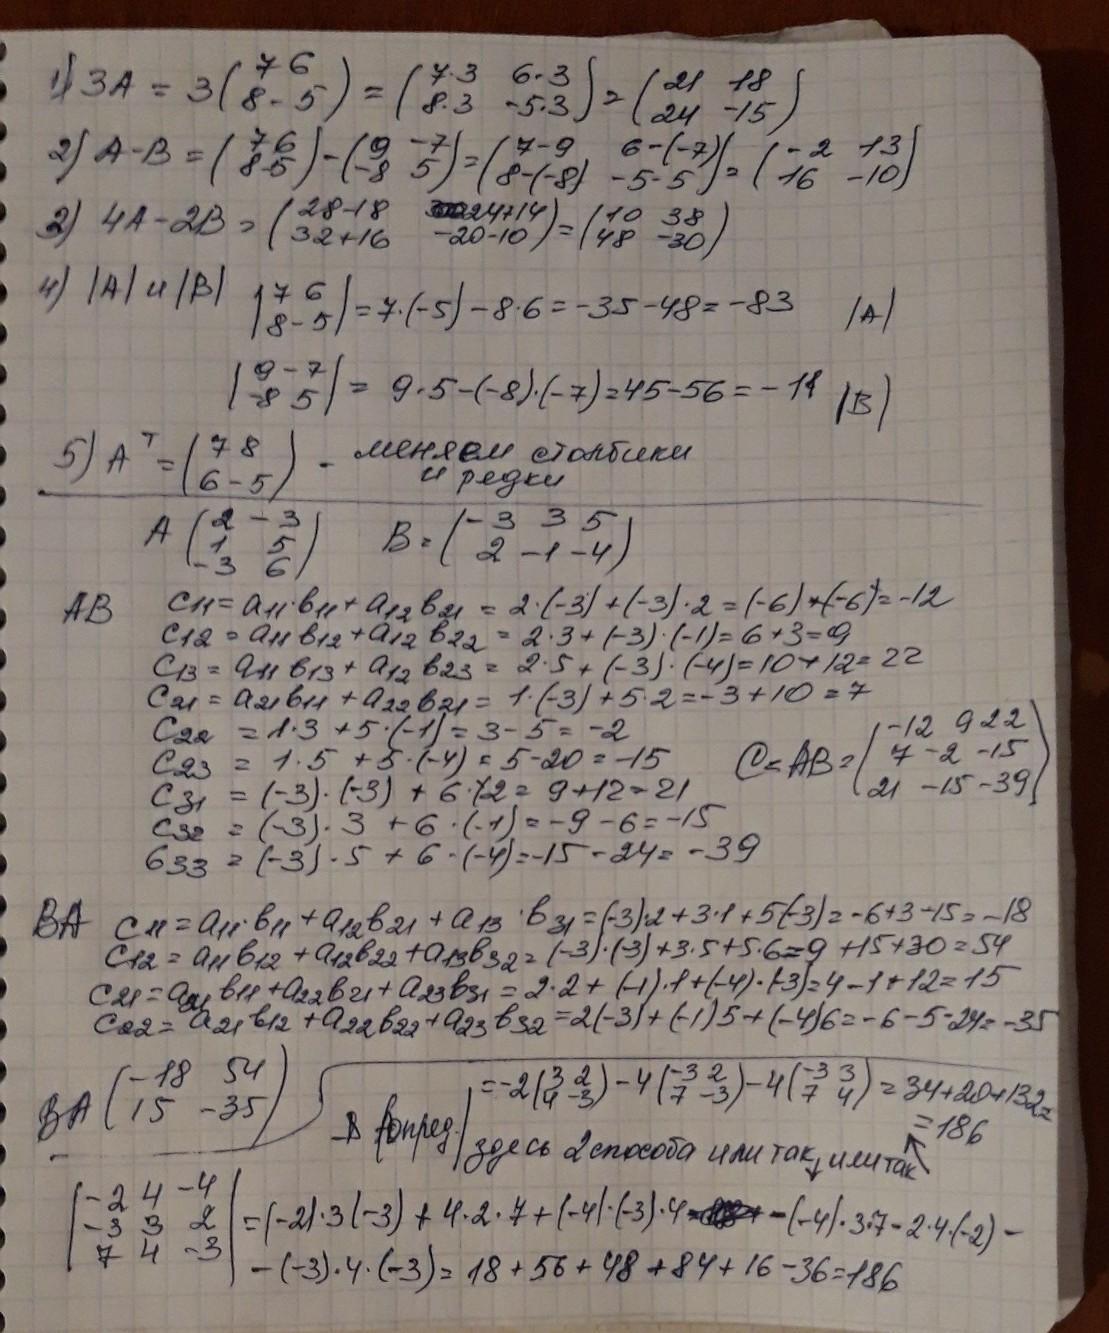 1) 3A = 3(7 6 / 8 -5) = (7·3 6·3 / 8·3 -5·3) = (21 18 / 24 -15)
2) A-B = (7 6 / 8 -5) - (9 -7 / -8 5) = (7-9 6-(-7) / 8-(-8) -5-5) = (-2 13 / 16 -10)
3) 4A-2B = (28-18 24+14 / 32+16 -20-10) = (10 38 / 48 -30)
4) |A| и |B| |7 6 / 8 -5| = 7·(-5)-8·6 = -35-48 = -83 |A|
|9 -7 / -8 5| = 9·5-(-8)·(-7) = 45-56 = -11 |B|
5) Aᵀ = (7 8 / 6 -5) - меняем столбики
и рядки
A (2 -3 / 1 5 / -3 6) B = (-3 3 5 / 2 -1 -4)
AB c11 = a11·b11 + a12b21 = 2·(-3)+(-3)·2 = (-6)+(-6) = -12
c12 = a11b12 + a12b22 = 2·3+(-3)·(-1) = 6+3 = 9
c13 = a11b13 + a12b23 = 2·5+(-3)·(-4) = 10+12 = 22
c21 = a21b11 + a22b21 = 1·(-3)+5·2 = -3+10 = 7
c22 = 1·3+5·(-1) = 3-5 = -2
c23 = 1·5+5·(-4) = 5-20 = -15
C = AB = (-12 9 22 / 7 -2 -15 / 21 -15 -39)
c31 = (-3)·(-3)+6·2 = 9+12 = 21
c32 = (-3)·3+6·(-1) = -9-6 = -15
б33 = (-3)·5+6·(-4) = -15-24 = -39
BA c11 = a11·b11 + a12b21 + a13·b31 = (-3)·2+3·1+5(-3) = -6+3-15 = -18
c12 = a11b12 + a12b22 + a13b32 = (-3)·(-3)+3·5+5·6 = 9+15+30 = 54
c21 = a21b11 + a22b21 + a23b31 = 2·2+(-1)·1+(-4)·(-3) = 4-1+12 = 15
c22 = a21b12 + a22b22 + a23b32 = 2(-3)+(-1)5+(-4)6 = -6-5-24 = -35
BA (-18 54 / 15 -35)
= -2(3 2 / 4 -3) - 4(-3 2 / 7 -3) - 4(-3 3 / 7 4) = 34+20+132 =
= 186
опред. здесь 2 способа или так, или так
|-2 4 -4 / -3 3 2 / 7 4 -3| = (-2)·3(-3) + 4·2·7 + (-4)·(-3)·4 - (-4)·3·7 - 2·4·(-2) -
-(-3)·4·(-3) = 18+56+48+84+16-36 = 186